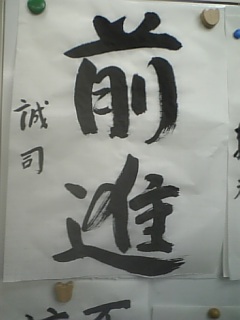 前進
誠司